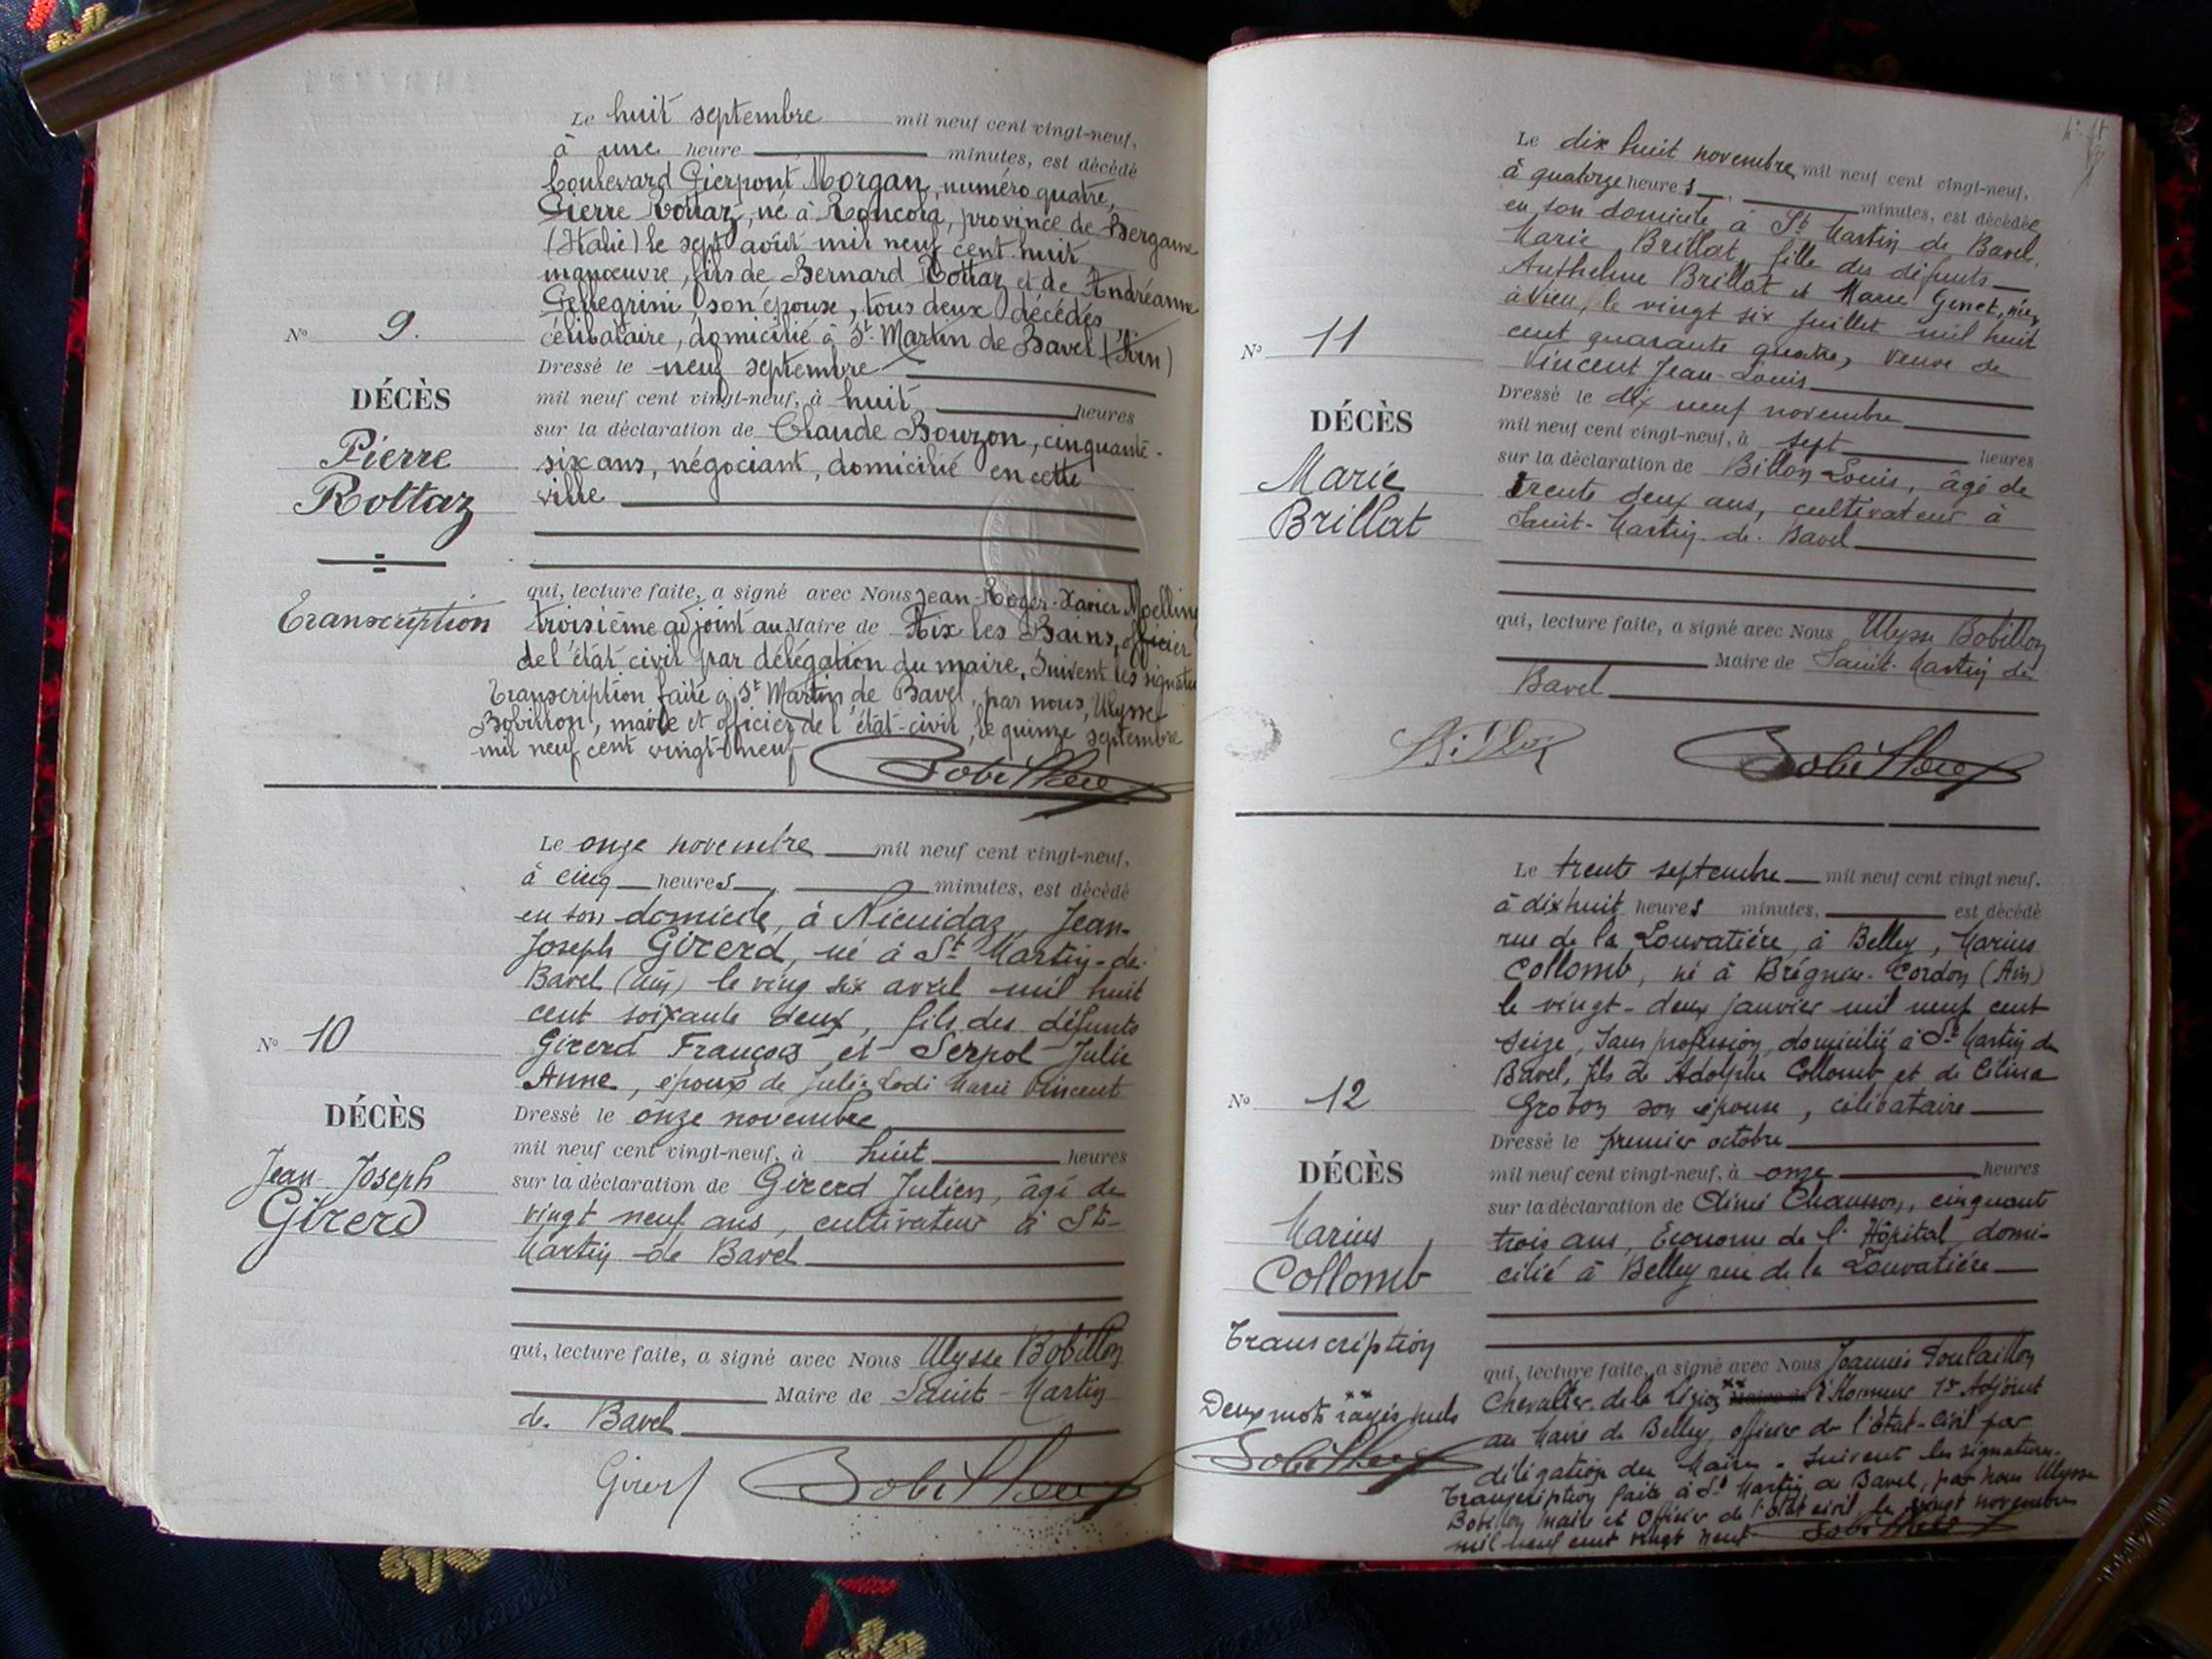 Le huit septembre mil neuf cent vingt-neuf,
à une heure minutes, est décédé
boulevard Pierpont Morgan, numéro quatre,
Pierre Rottaz, né à Roncola, province de Bergame
(Italie) le sept août mil neuf cent huit
manœuvre, fils de Bernard Rottaz et de Andréanne
Pellegrini, son épouse, tous deux décédés,
célibataire, domicilié à St. Martin de Bavel (Ain)
Dressé le neuf septembre
mil neuf cent vingt-neuf, à huit heures
sur la déclaration de Claude Bouzon, cinquante-
six ans, négociant, domicilié en cette
ville
qui, lecture faite, a signé avec Nous Jean-Roger-Xavier Moelling
troisième adjoint au Maire de Aix les Bains, officier
de l'état civil par délégation du maire. Suivent les signatu
Transcription faite à St Martin de Bavel, par nous, Ulysse
Bobillon, maire et officier de l'état-civil, le quinze septembre
mil neuf cent vingt-neuf
Bobillon
No 9.
DÉCÈS
Pierre
Rottaz
Transcription
Le onze novembre mil neuf cent vingt-neuf,
à cinq heures minutes, est décédé
en son domicile, à Jean-
Joseph Girerd, né à St Martin-de-
Bavel (Ain) le ving six avril mil huit
cent soixante deux, fils des défunts
Girerd François et Serpol Julie
Anne, époux de Julie Marie Vincent
Dressé le onze novembre
mil neuf cent vingt-neuf, à huit heures
sur la déclaration de Girerd Julien, âgé de
vingt neuf ans, cultivateur à St-
Martin de Bavel
qui, lecture faite, a signé avec Nous Ulysse Bobillon
Maire de Saint-Martin
de Bavel
Girerd Bobillon
No 10
DÉCÈS
Jean-Joseph
Girerd
Le dix huit novembre mil neuf cent vingt-neuf,
à quatorze heures minutes, est décédée
en son domicile à St Martin de Bavel,
Marie Brillat, fille des défunts
Anthelme Brillat et Marie Genet, née
à Vieu, le vingt six juillet mil huit
cent quarante quatre, veuve de
Vincent Jean-Louis
Dressé le dix neuf novembre
mil neuf cent vingt-neuf, à sept heures
sur la déclaration de Billon Louis, âgé de
trente deux ans, cultivateur à
Saint-Martin-de-Bavel
qui, lecture faite, a signé avec Nous Ulysse Bobillon
Maire de Saint-Martin de
Bavel
Billon Bobillon
No 11
DÉCÈS
Marie
Brillat
Le trente septembre mil neuf cent vingt neuf,
à dix huit heures minutes, est décédé
rue de la Louvatière, à Belley, Marius
Collomb, né à Brégnier-Cordon (Ain)
le vingt-deux janvier mil neuf cent
seize, sans profession, domicilié à St Martin de
Bavel, fils de Adolphe Collomb et de Célina
Grobon son épouse, célibataire
Dressé le premier octobre
mil neuf cent vingt-neuf, à onze heures
sur la déclaration de Aimé Chausson, cinquante
trois ans, Econome de l'Hôpital, domi-
cilié à Belley rue de la Louvatière
qui, lecture faite, a signé avec Nous Joannès
Chevalier de la Légion Maire de d'Honneur 1er Adjoint
au Maire de Belley, officier de l'état-civil par
délégation du Maire. Suivent les signatures.
Transcription faite à St Martin de Bavel, par nous Ulysse
Bobillon Maire et Officier de l'état civil le vingt novembre
mil neuf cent vingt neuf. Bobillon
No 12
DÉCÈS
Marius
Collomb
Transcription
Deux mots rayés nuls
Bobillon